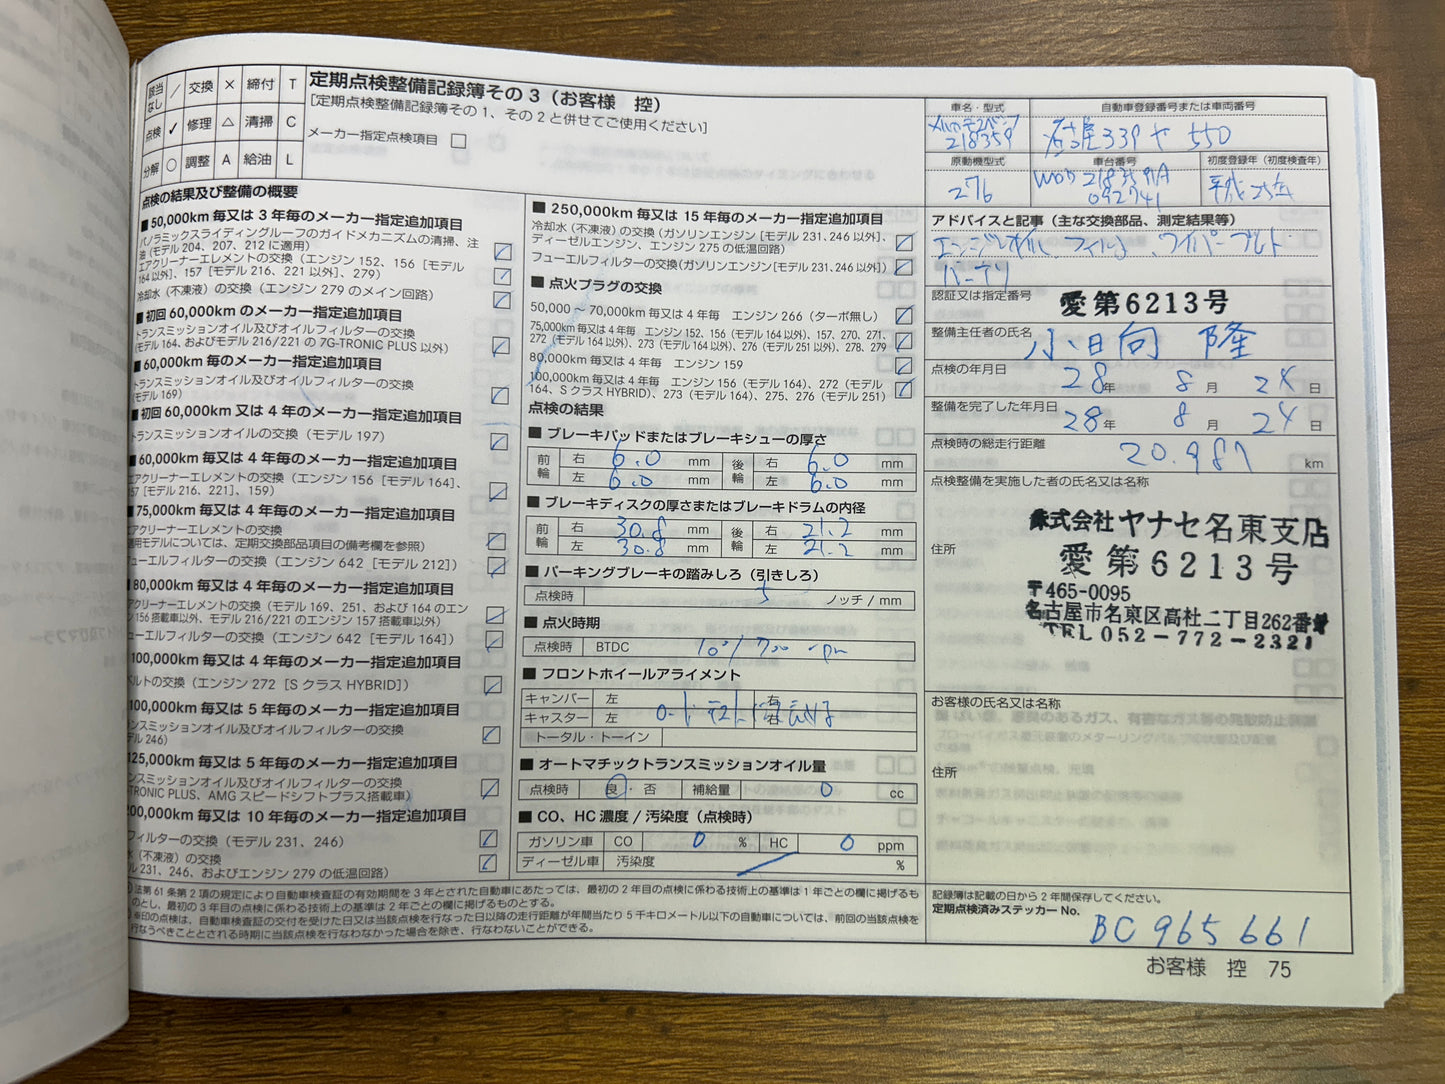 該当なし ／ 交換 × 締付 T
点検 ✓ 修理 △ 清掃 C
分解 ○ 調整 A 給油 L
定期点検整備記録簿その3（お客様　控）
［定期点検整備記録簿その1、その2と併せてご使用ください］
メーカー指定点検項目 □
点検の結果及び整備の概要
■ 50,000km 毎又は 3 年毎のメーカー指定追加項目
パノラミックスライディングルーフのガイドメカニズムの清掃、注
油（モデル 204、207、212 に適用）
エアクリーナーエレメントの交換（エンジン 152、156［モデル
164 以外］、157［モデル 216、221 以外］、279）
冷却水（不凍液）の交換（エンジン 279 のメイン回路）
■ 初回 60,000km のメーカー指定追加項目
トランスミッションオイル及びオイルフィルターの交換
（モデル 164、およびモデル 216/221 の 7G-TRONIC PLUS 以外）
■ 60,000km 毎のメーカー指定追加項目
トランスミッションオイル及びオイルフィルターの交換
（モデル 169）
■ 初回 60,000km 又は 4 年毎のメーカー指定追加項目
トランスミッションオイルの交換（モデル 197）
■ 60,000km 毎又は 4 年毎のメーカー指定追加項目
エアクリーナーエレメントの交換（エンジン 156［モデル 164］、
157［モデル 216、221］、159）
■ 75,000km 毎又は 4 年毎のメーカー指定追加項目
エアクリーナーエレメントの交換
適用モデルについては、定期交換部品項目の備考欄を参照）
フューエルフィルターの交換（エンジン 642［モデル 212］）
■ 80,000km 毎又は 4 年毎のメーカー指定追加項目
アクリーナーエレメントの交換（モデル 169、251、および 164 のエン
ン 156 搭載車以外、モデル 216/221 のエンジン 157 搭載車以外）
ューエルフィルターの交換（エンジン 642［モデル 164］）
100,000km 毎又は 4 年毎のメーカー指定追加項目
ベルトの交換（エンジン 272［S クラス HYBRID］）
100,000km 毎又は 5 年毎のメーカー指定追加項目
ンスミッションオイル及びオイルフィルターの交換
デル 246）
125,000km 毎又は 5 年毎のメーカー指定追加項目
ンスミッションオイル及びオイルフィルターの交換
-TRONIC PLUS、AMG スピードシフトプラス搭載車）
200,000km 毎又は 10 年毎のメーカー指定追加項目
フィルターの交換（モデル 231、246）
水（不凍液）の交換
ル 231、246、およびエンジン 279 の低温回路）
■ 250,000km 毎又は 15 年毎のメーカー指定追加項目
冷却水（不凍液）の交換（ガソリンエンジン［モデル 231、246 以外］、
ディーゼルエンジン、エンジン 275 の低温回路）
フューエルフィルターの交換（ガソリンエンジン［モデル 231、246 以外］）
■ 点火プラグの交換
50,000 ～ 70,000km 毎又は 4 年毎　エンジン 266（ターボ無し）
75,000km 毎又は 4 年毎　エンジン 152、156（モデル 164 以外）、157、270、271、
272（モデル 164 以外）、273（モデル 164 以外）、276（モデル 251 以外）、278、279
80,000km 毎又は 4 年毎　エンジン 159
100,000km 毎又は 4 年毎　エンジン 156（モデル 164）、272（モデル
164、S クラス HYBRID）、273（モデル 164）、275、276（モデル 251）
点検の結果
■ ブレーキパッドまたはブレーキシューの厚さ
前輪 右 6.0 mm 後輪 右 6.0 mm
左 6.0 mm 左 6.0 mm
■ ブレーキディスクの厚さまたはブレーキドラムの内径
前輪 右 30.8 mm 後輪 右 21.2 mm
左 30.8 mm 左 21.2 mm
■ パーキングブレーキの踏みしろ（引きしろ）
点検時 5 ノッチ / mm
■ 点火時期
点検時 BTDC 10°/ 700 rpm
■ フロントホイールアライメント
キャンバー 左 右
キャスター 左 右
トータル・トーイン
■ オートマチックトランスミッションオイル量
点検時 良・否 補給量 0 cc
■ CO、HC 濃度 / 汚染度（点検時）
ガソリン車 CO 0 % HC 0 ppm
ディーゼル車 汚染度 %
法第 61 条第 2 項の規定により自動車検査証の有効期間を 3 年とされた自動車にあたっては、最初の 2 年目の点検に係わる技術上の基準は 1 年ごとの欄に掲げるも
のとし、最初の 3 年目の点検に係わる技術上の基準は 2 年ごとの欄に掲げるものとする。
※印の点検は、自動車検査証の交付を受けた日又は当該点検を行なった日以降の走行距離が年間当たり 5 千キロメートル以下の自動車については、前回の当該点検を
行なうべきこととされる時期に当該点検を行なわなかった場合を除き、行なわないことができる。
車名・型式 自動車登録番号または車両番号
メルセデスベンツ
218359 名古屋 339 や 550
原動機型式 車台番号 初度登録年（初度検査年）
276 WDD 218359 1A 092741 平成 25年
アドバイスと記事（主な交換部品、測定結果等）
エンジンオイル、フィルター、ワイパーブレード
バッテリ
認証又は指定番号 愛第6213号
整備主任者の氏名 小日向 隆
点検の年月日 28 年 8 月 24 日
整備を完了した年月日 28 年 8 月 24 日
点検時の総走行距離 20.987 km
点検整備を実施した者の氏名又は名称
株式会社ヤナセ名東支店
住所 愛第6213号
〒465-0095
名古屋市名東区高社二丁目262番
TEL 052-772-2321
お客様の氏名又は名称
住所
記録簿は記載の日から 2 年間保存してください。
定期点検済みステッカー No.
BC 965 661
お客様　控　75